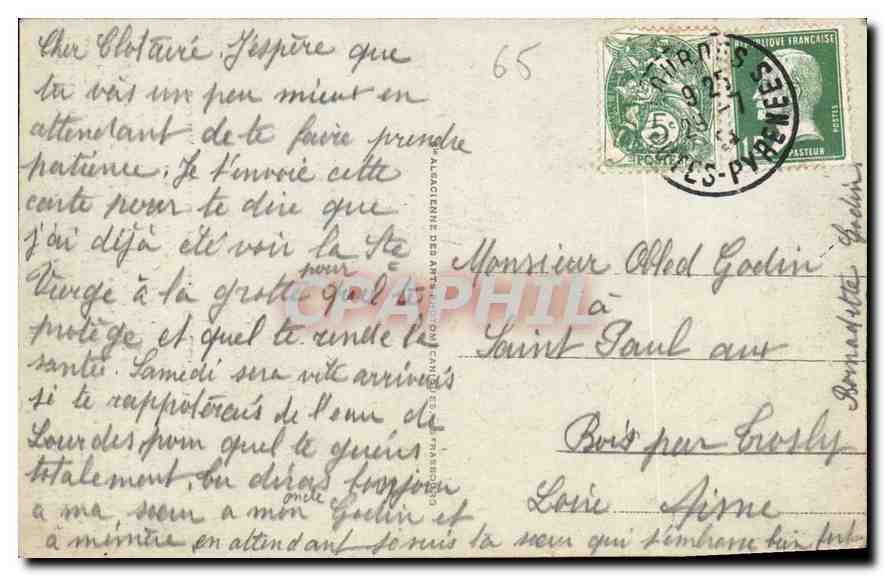 Cher Clotaire. J'espère que
tu vas un peu mieux en
attendant de te faire prendre
patience. Je t'envoie cette
carte pour te dire que
j'ai déjà été voir la Ste
Vierge à la grotte pour quel te
protège et quel te rende la
santée. Samedi sera vite arrivé
si te rapporterais de l'eau de
Lourdes pour quel te guéris
totalement. tu diras bonjour
a ma sœur a mon oncle Godin et
à mémère en attendant je suis ta sœur qui t'embrasse bien fort
Bernadette Godin
65
Monsieur Oled Godin
à
Saint Paul aux
Bois par Trosly
Loire Aisne
Cie ALSACIENNE DES ARTS PHOTOMÉCANIQUES STRASBOURG
5c
POSTES
RÉPUBLIQUE FRANÇAISE
POSTES
PASTEUR
LOURDES
9 25
PYRENEES
CPAPHIL